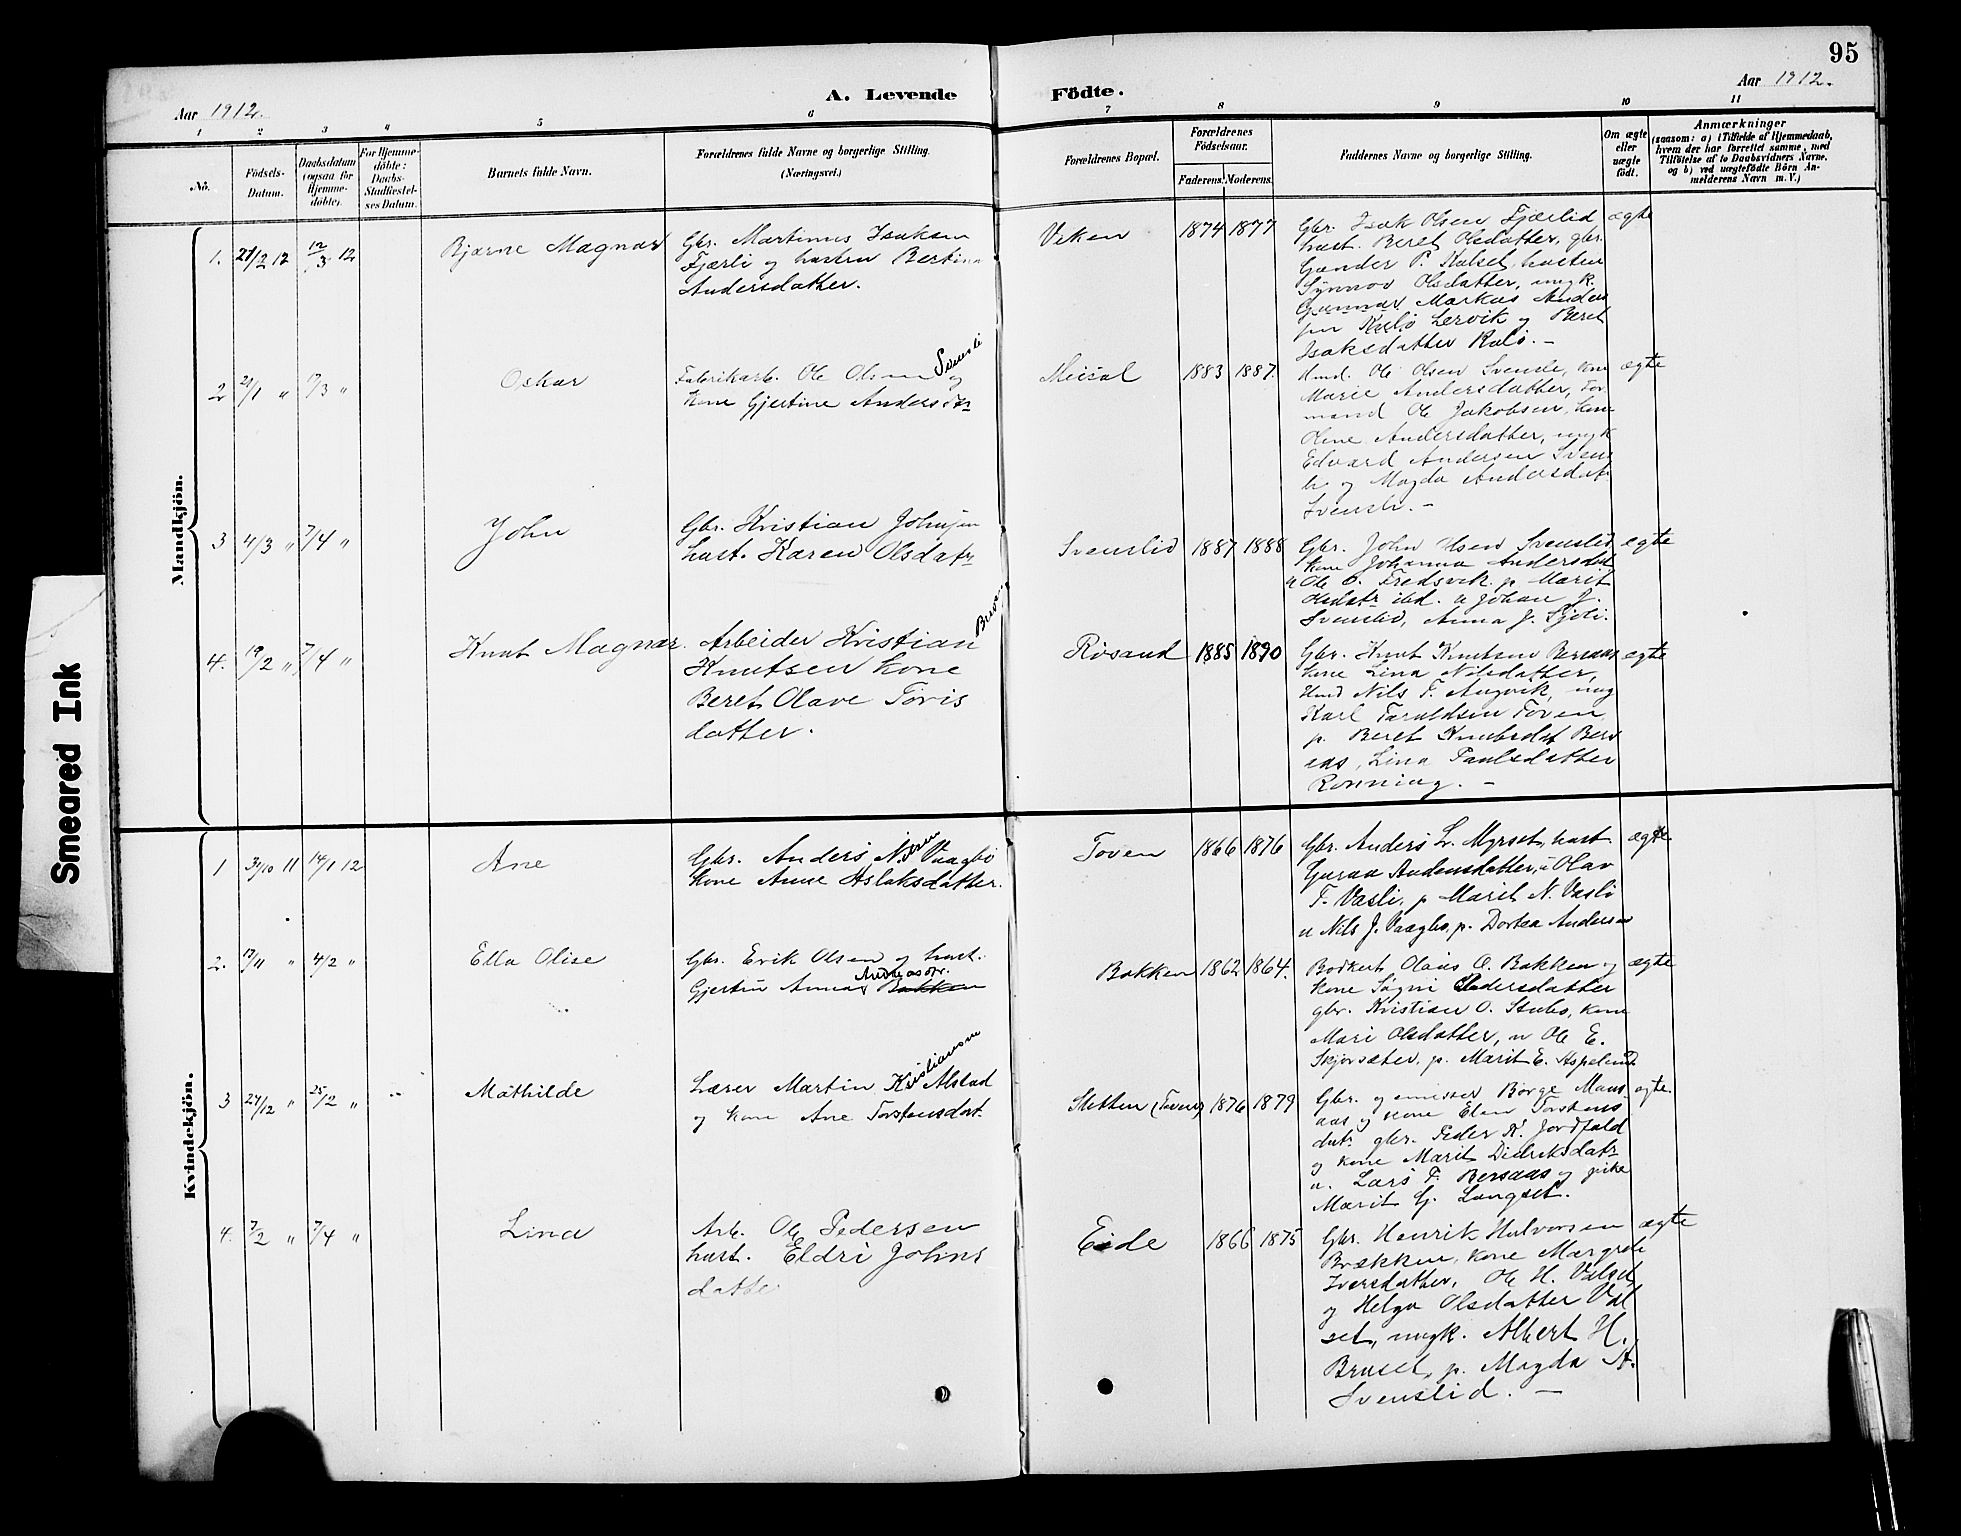 95
Aar 1912.
A. Levende
Födte.
Aar 1912.
1 2 3 4 5 6 7 8 9 10 11
No.
Födsels-
Datum.
Daabsdatum
(ogsaa for
Hjemme-
döbte).
For Hjemme-
döbte:
Daabs-
Stadfæstel-
ses Datum.
Barnets fulde Navn.
Forældrenes fulde Navne og borgerlige Stilling
(Næringsvei.)
Forældrenes Bopæl.
Forældrenes
Födselsaar.
Faderens. Moderens.
Faddernes Navne og borgerlige Stilling.
Om ægte
eller
uægte
födt.
Anmærkninger
(saasom: a) i Tilfælde af Hjemmedaab,
hvem der har forrettet samme, med
Tilföielse af to Daabsvidners Navne,
og b) ved uægtefödte Börn An-
melderens Navn m. V.)
Mandkjön.
1. 27/2 12 12/3 12
Bjarne Magnar
Gbr. Martinus Isaksen
Fjærli og hustru Bertine
Andersdatter.
Viken
1874 1877
Gbr. Isak Olsen Fjærlid
hust. Beret Olsdatter, gbr.
Gunder P. hustru
Synnøv Olsdatter, ungk.
Gunnar Markus Anders
sen Lervik og Beret
Isaksdatter
ægte
2 21/1 " 17/3 "
Oskar
Fabrikarb. Ole Olsen Svensli og
kone Gjertine Andersdtr
Meisal
1883 1887.
Ole Olsen Svensli, kone
Marie Andersdatter, For
mand Ole Jakobsen, kone
Oline Andersdatter, ungk
Edvard Andersen Svens
li og Magda Andersdatr
Svensli. -
ægte
3 4/3 " 7/4 "
John
Gbr. Kristian Johnsen
hust. Karen Olsdatr
Svenslid
1887 1888
Gbr. John Olsen Svenslid
kone Johanna Andersdat
u Ole O. Fredsvik p. Marit
Olsdatr ibd. u Johan J.
Svenslid, Anna J.
ægte
4. 19/2 " 7/4 "
Knut Magnar.
Arbeider Kristian
Knutsen kone
Beret Olave Toris
datter.
Røsand
1885 1890
Gbr. Knut Knutsen Bersaas
kone Lina Nilsdatter,
Nils T. Angvik, ung
Karl Taraldsen Toven
p. Beret Knutsdat Bers
aas, Lina Paulsdatter
Rønning. -
ægte
Kvindekjön.
1 31/10 11 14/1 12
Ane
Gbr. Anders Vaagbø
kone Anne Aslaksdatter.
Toven
1866 1876
Gbr. Anders L. Myrset, hust.
Guraa Andersdatter, u Olav
T. Vasli, p Marit N. Vasli
u Nils J. Vaagbø, p. Dortea Andersen
ægte
2. 13/11 " 4/2 "
Ella Olise
Gbr. Erik Olsen og hust.
Gjertine Anna Andreasdtr. Bakken
Bakken
1862 1864.
Olaus O. Bakken og
kone Pedersdatter
gbr. Kristian O. Stubø, kone
Mari Olsdatter, u Ole E.
Skjørsæter, p. Marit E. Aspelund
ægte
3 27/12 " 25/2 "
Mathilde
Lærer Martin Kristiansen Alstad
og kone Ane Torstensdat.
Sletten (Toven)
1876 1879
Gbr. og Børge Maus
aas og kone Elen Torstens
datr gbr. Peder K. Jordfald
og kone Marit Didriksdatr
u. Lars T. Bersaas og pike
Marit G. Langset.
ægte.
4. 7/2 " 7/4 "
Lina
Arb. Ole Pedersen
hust. Eldri Johns
datte
Eide
1866 1875
Gbr. Henrik Halvorsen
Brækken, kone Margrete
Iversdatter, Ole H. Valset
og Helga Olsdatter Val
set, ungk. Albert H.
Bruset, p. Magda A.
Svenslid. -
ægte
Smeared Ink